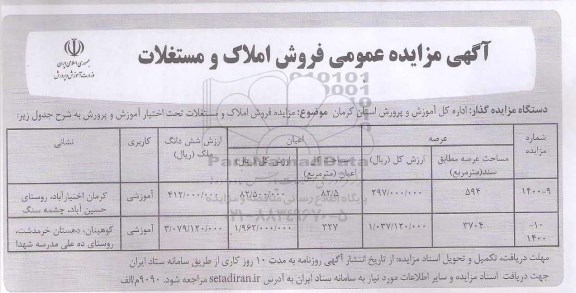 جمهوری اسلامی ایران
وزارت آموزش و پرورش
آگهی مزایده عمومی فروش املاک و مستغلات
دستگاه مزایده گذار: اداره کل آموزش و پرورش استان کرمان موضوع: مزایده فروش املاک و مستغلات تحت اختیار آموزش و پرورش به شرح جدول زیر:
شماره مزایده | عرصه | اعیان | ارزش شش دانگ ملک (ریال) | کاربری | نشانی
مساحت عرصه مطابق سند(مترمربع) | ارزش کل (ریال) | اعیان (مترمربع) | ارزش کل (ریال)
۱۴۰۰-۹ | ۵۹۴ | ۲۹۷/۰۰۰/۰۰۰ | ۸۲/۵ | ۸۲/۵۰۰/۰۰۰ | ۴۱۲/۰۰۰/۰۰۰ | آموزشی | کرمان اختیارآباد، روستای حسین آباد، چشمه سنگ
۱۰-۱۴۰۰ | ۳۷۰۴ | ۱/۰۳۷/۱۲۰/۰۰۰ | ۳۲۷ | ۱/۹۶۲/۰۰۰/۰۰۰ | ۳/۰۷۹/۱۲۰/۰۰۰ | آموزشی | کوهبنان، دهستان خرمدشت، روستای ده علی مدرسه شهدا
مهلت دریافت، تکمیل و تحویل اسناد مزایده: از تاریخ انتشار آگهی روزنامه به مدت ۱۰ روز کاری از طریق سامانه ستاد ایران
جهت دریافت اسناد مزایده و سایر اطلاعات مورد نیاز به سامانه ستاد ایران به آدرس setadiran.ir مراجعه شود. ۹۰۹۰م/الف
ParsNamadData
۰۲۱-۸۸۳۴۹۶۷۰-۵